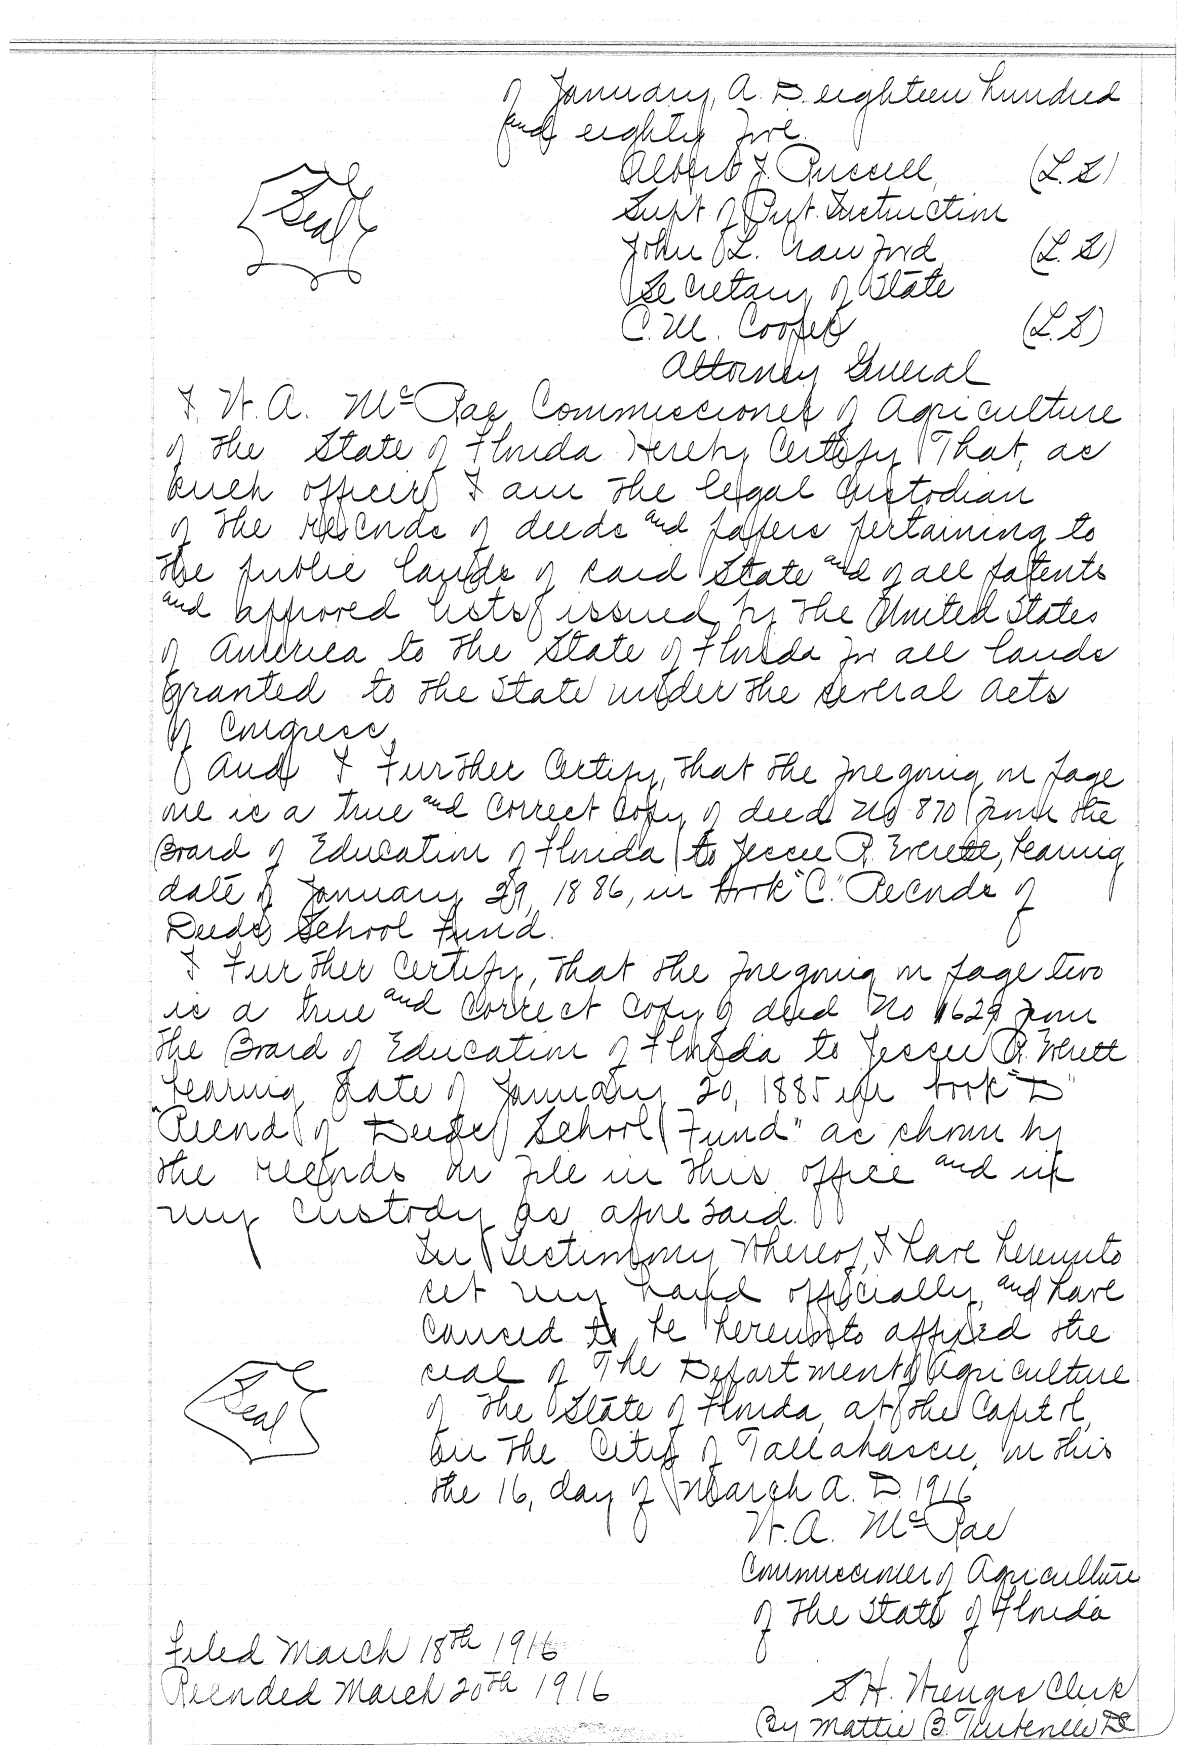 of January, A. D. eighteen hundred
and eighty five.
Albert J. Russell, (L. S)
Seal
Supt of Put. Instruction
John L. Crawford, (L. S)
Secretary of State
C. M. Cooper (L. S)
Attorney General
I. W. A. McRae, Commissioner of Agriculture
of the State of Florida Hereby Certify, That, as
such officer, I am the legal custodian
of the records of deeds and papers pertaining to
the public lands of said State and of all patents
and approved lists issued by the United States
of America to the State of Florida for all lands
granted to the State under the several acts
of Congress.
And I Further Certify, that the foregoing on page
one is a true and correct copy of deed No 870 from the
Board of Education of Florida to Jesse R. Everett, bearing
date of January 29, 1886, in book "C." Records of
Deeds School Fund.
I Further Certify, that the foregoing on page two
is a true and correct copy of deed No 1629 from
the Board of Education of Florida to Jesse R. Everett
bearing date of January 20, 1885 in book "D"
"Record of Deeds School Fund" as shown by
the records on file in this office and in
my custody as aforesaid.
In Testimony Whereof, I have hereunto
set my hand officially, and have
caused to be hereunto affixed the
seal of The Department of Agriculture
Seal
of the State of Florida, at the Capitol,
in the City of Tallahassee, on this
the 16, day of March A. D. 1916
W. A. McRae
Commissioner of Agriculture
of the State of Florida
Filed March 18th 1916
Recorded March 20th 1916
S H. Clerk
By Mattie B. DC